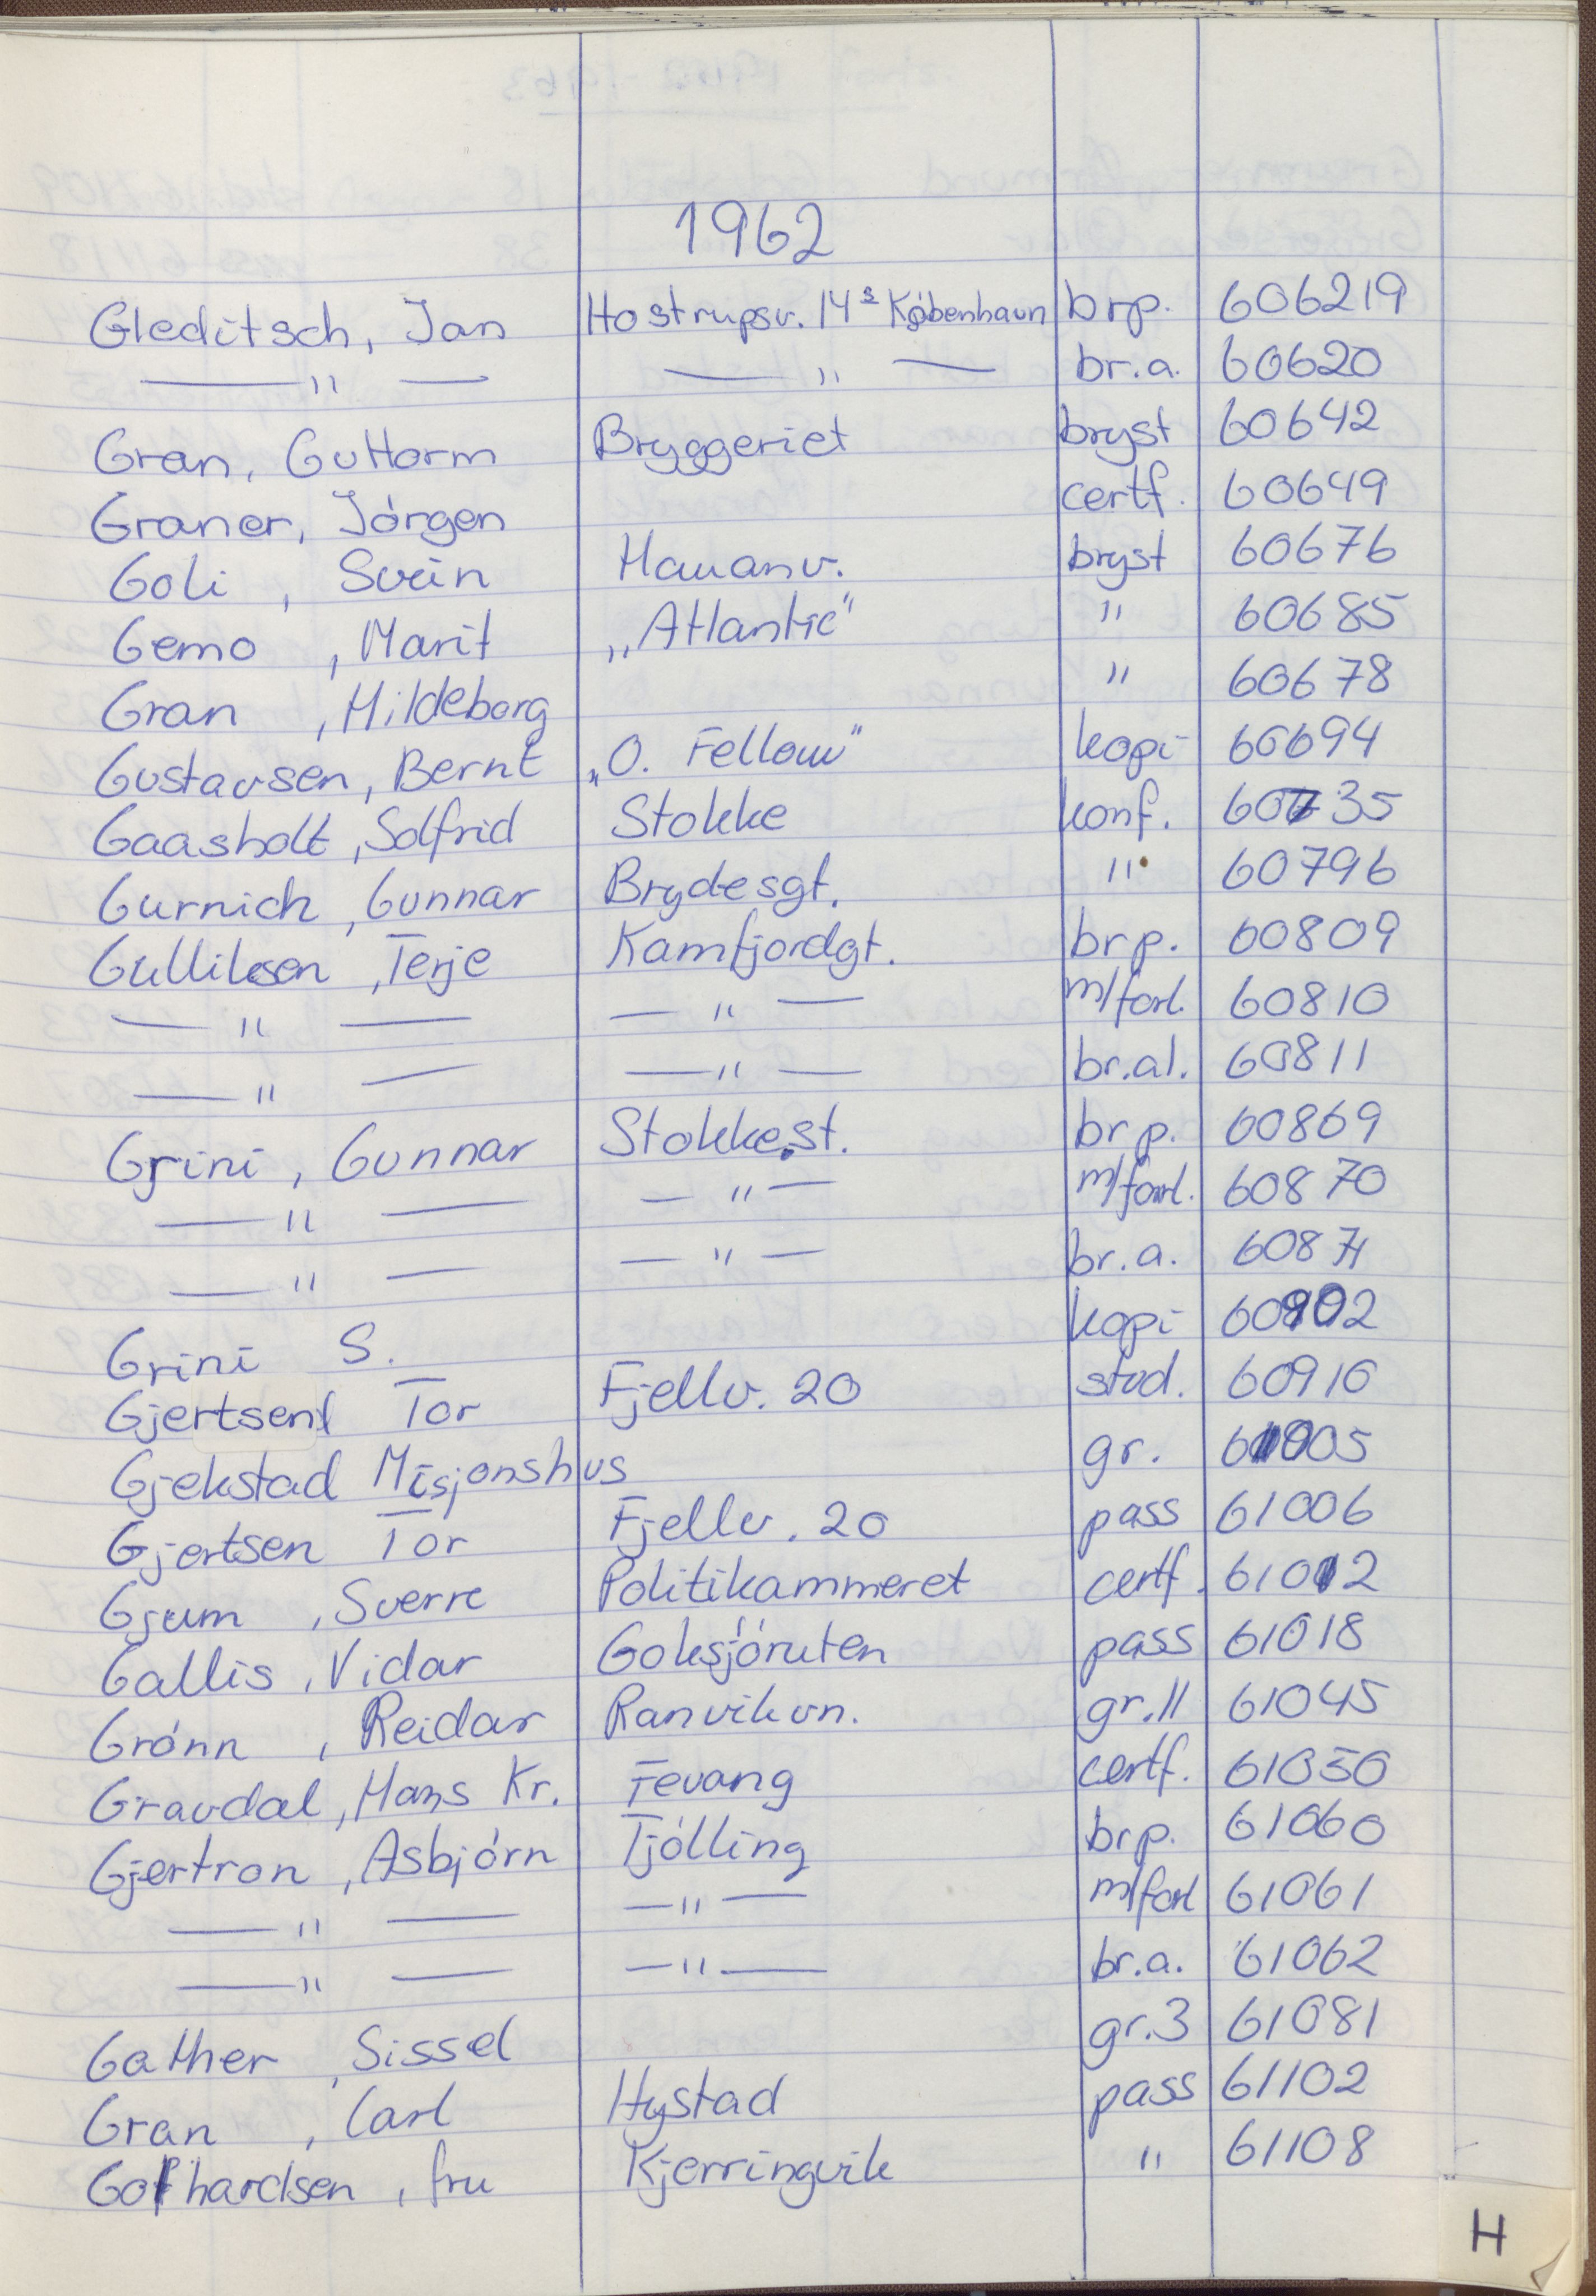 1962
Gleditsch, Jan Hostrupsv. 14³ København brp. 606219
— " — — " — br.a. 60620
Gran, Guttorm Bryggeriet bryst 60642
Graner, Jørgen certf. 60649
Goli, Svein Hauanv. bryst 60676
Gemo, Marit „Atlantic" " 60685
Gran, Hildeborg " 60678
Gustavsen, Bernt „O. Fellow" kopi 60694
Gaasholt, Solfrid Stokke konf. 60735
Gurnich, Gunnar Brydesgt. " 60796
Gulliksen, Terje Kamfjordgt. brp. 60809
— " — — " — m/forl. 60810
— " — — " — br.al. 60811
Grini, Gunnar Stokke.st. brp. 60869
— " — — " — m/forl. 60870
— " — — " — br.a. 60871
Grini S. kopi 60902
Gjertsen Tor Fjellv. 20 stud. 60916
Gjekstad Misjonshus gr. 61005
Gjertsen Tor Fjellv. 20 pass 61006
Gjum, Sverre Politikammeret certf. 61012
Gallis, Vidar Goksjøruten pass 61018
Grønn, Reidar Ranvikvn. gr.11 61045
Gravdal, Hans Kr. Fevang certf. 61050
Gjertron, Asbjørn Tjølling brp. 61060
— " — — " — m/forl 61061
— " — — " — br.a. 61062
Gather, Sissel gr.3 61081
Gran, Carl Hystad pass 61102
Gothardsen, fru Kjerringvik " 61108
H